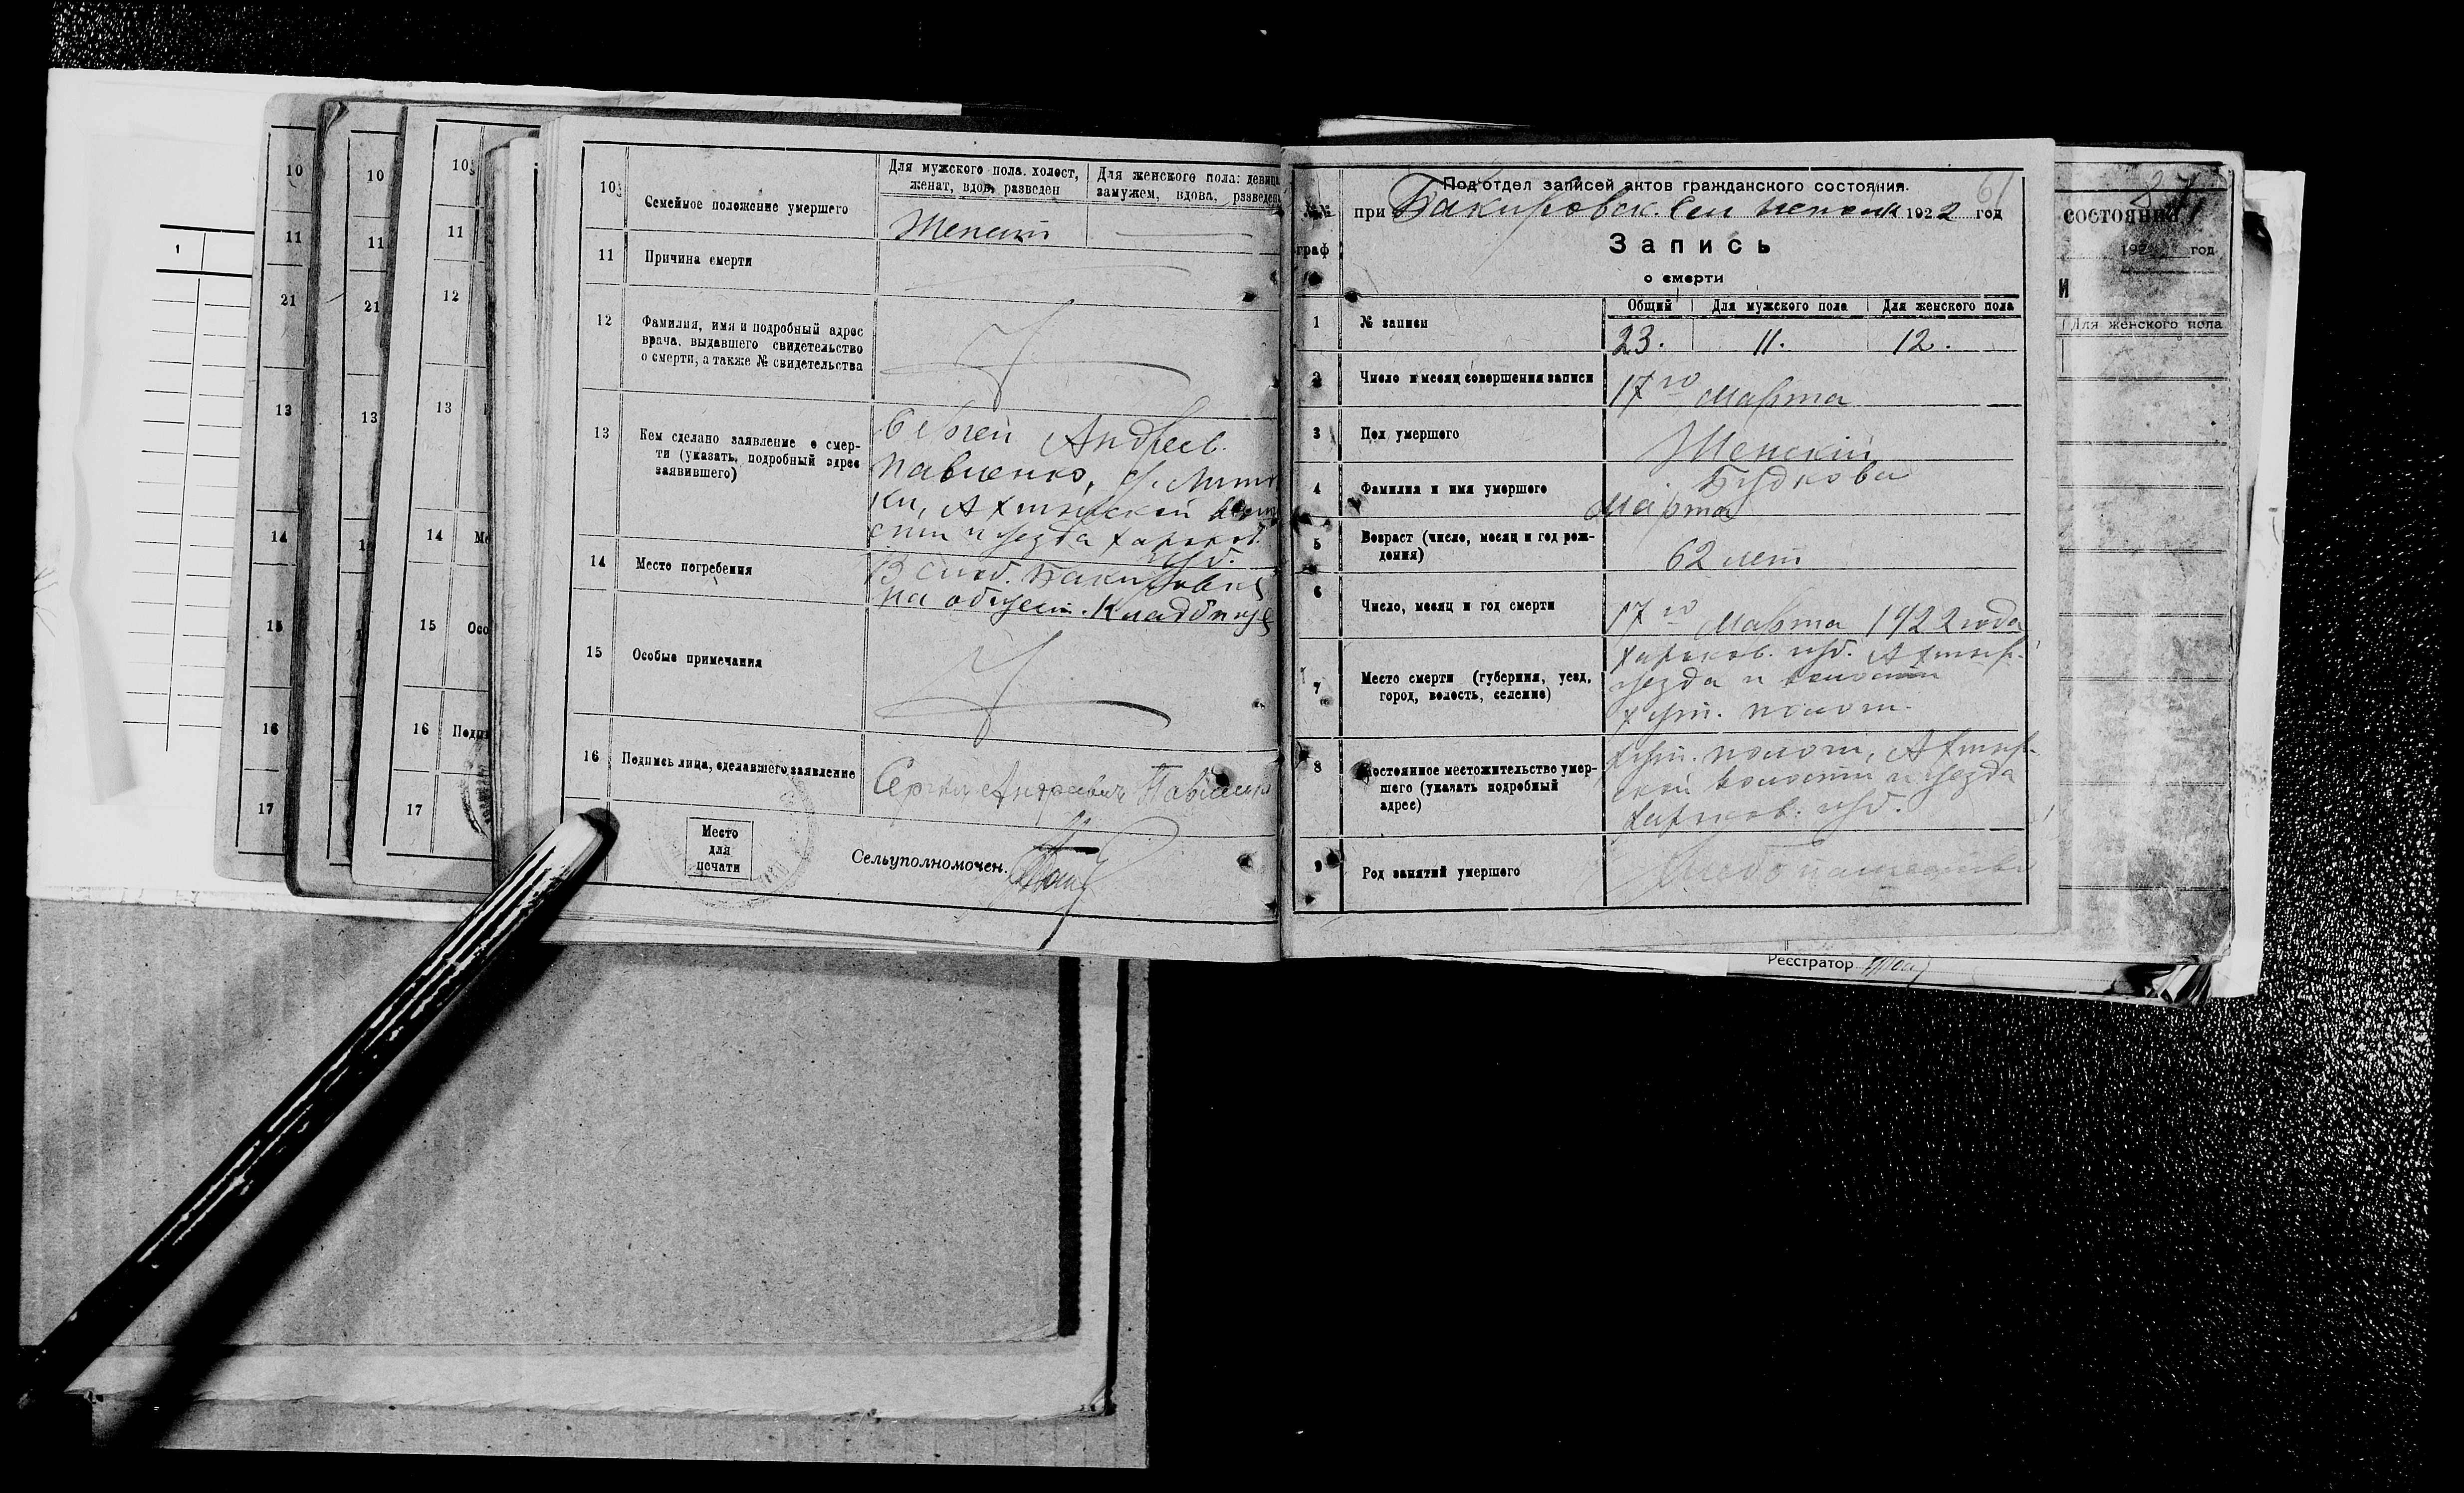 10
11
21
13
14
15
16
17
10
11
21
13
10
11
12
13
14
15
16
17
10
Семейное положение умершего
Для мужского пола. холост, женат, вдов, разведен
Для женского пола: девица замужем, вдова, разведен
Женат
11
Причина смерти
12
Фамилия, имя и подробный адрес
врача, выдавшего свидетельство
о смерти, а также № свидетельства
13
Кем сделано заявление о смер-
ти (указать, подробный адрес
заявившего)
Сергей Андреев.
Павленко,
ки, Ахтырской
сти и уезда Харьков.
губ.
14
Место погребения
В слоб. Бакировке
на общест. Кладбище
15
Особые примечания
16
Подпись лица, сделавшего заявление
Сергей Андреевич Павленко
Место
для
печати
Сельуполномочен.
61
Подотдел записей актов гражданского состояния.
при Бакировск. Сел исполк 1922 год
№№
граф
Запись
о смерти
Общий
Для мужского пола
Для женского пола
1
№ записи
23.
11.
12.
2
Число и месяц совершения записи
17го Марта
3
Пол умершого
Женский
4
Фамилия и имя умершого
Будкова
Марта
5
Возраст (число, месяц и год рож-
дения)
62 лет
6
Число, месяц и год смерти
17го Марта 1922 года
7
Место смерти (губерния, уезд,
город, волость, селение)
Харьков. губ. Ахтыр.
уезда и волости
хут.
8
Постоянное местожительство умер-
шего (указать подробный
адрес)
хут. Ахтыр-
ской волости и уезда
Харьков. губ.
9
Род занятий умершого
Хлебопашество
состояния
192 год
И
Для женского пола
Реєстратор